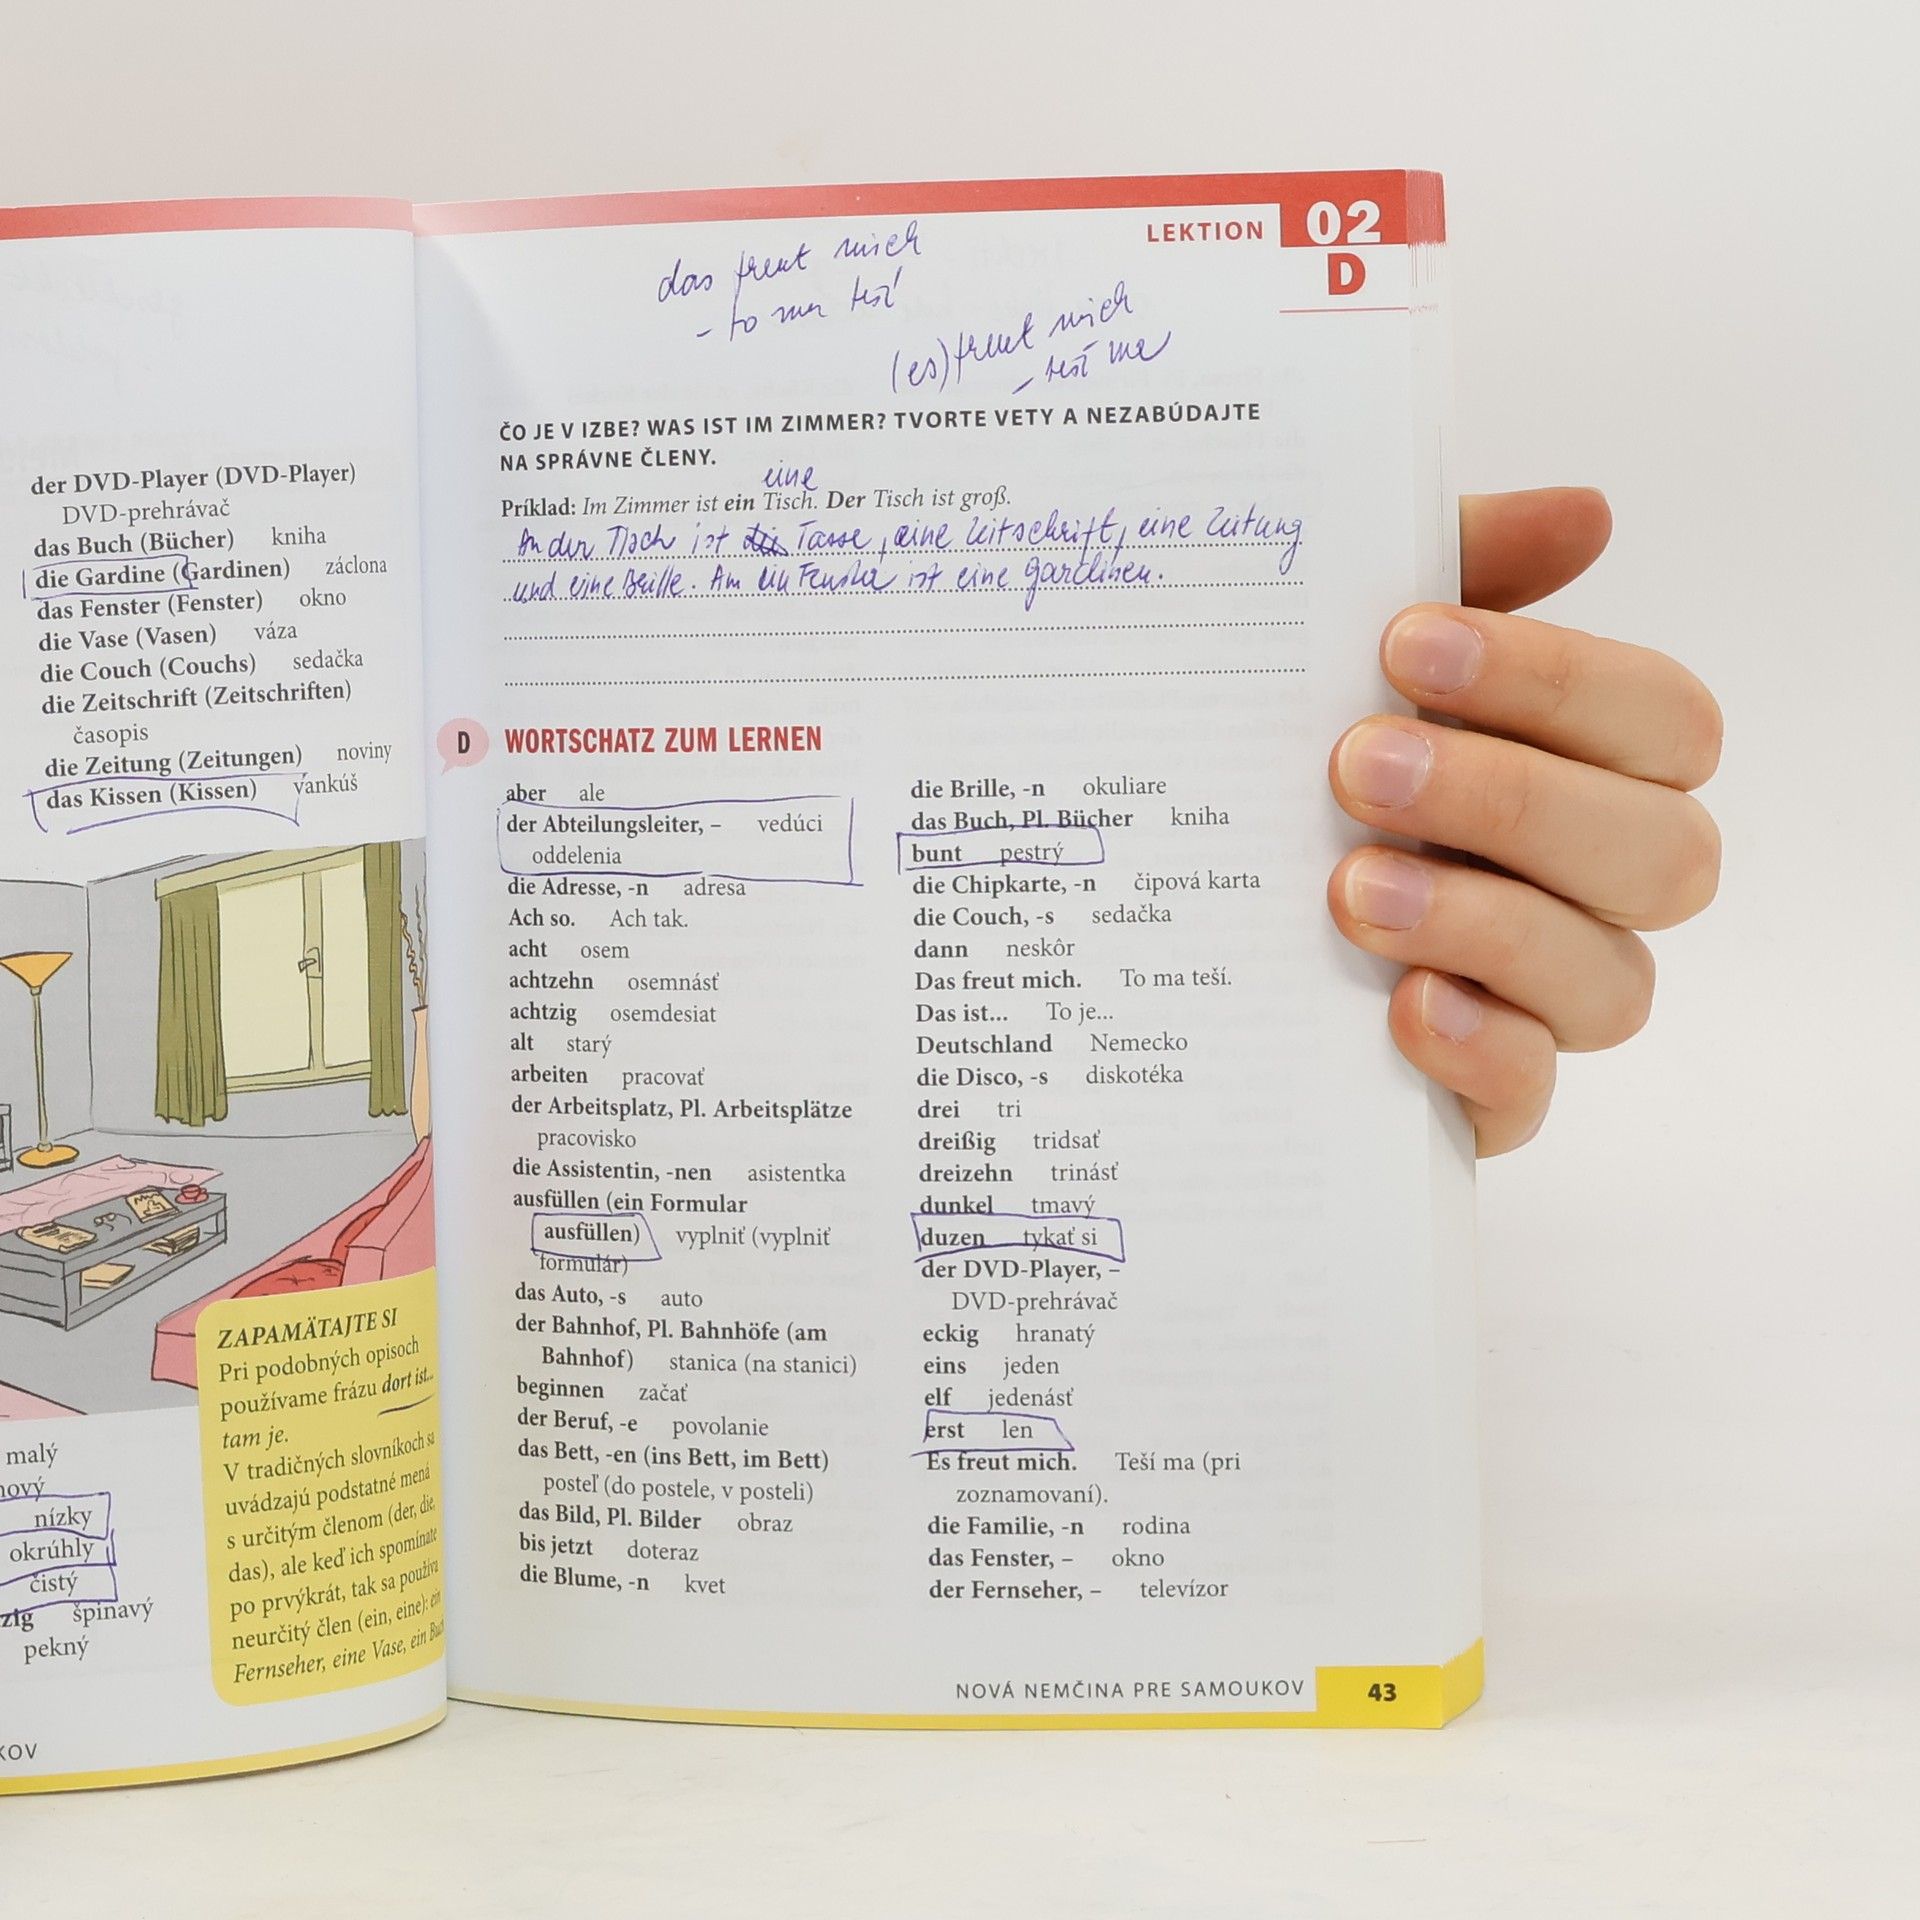 der DVD-Player (DVD-Player)
DVD-prehrávač
das Buch (Bücher) kniha
die Gardine (Gardinen) záclona
das Fenster (Fenster) okno
die Vase (Vasen) váza
die Couch (Couchs) sedačka
die Zeitschrift (Zeitschriften)
časopis
die Zeitung (Zeitungen) noviny
das Kissen (Kissen) vankúš
malý
nový
nízky
okrúhly
čistý
zig špinavý
pekný
ZAPAMÄTAJTE SI
Pri podobných opisoch
používame frázu dort ist...
tam je.
V tradičných slovníkoch sa
uvádzajú podstatné mená
s určitým členom (der, die,
das), ale keď ich spomínate
po prvýkrát, tak sa používa
neurčitý člen (ein, eine): ein
Fernseher, eine Vase, ein Buch
KOV
LEKTION 02
D
das freut mich
- to ma teší
(es) freut mich
- teší ma
ČO JE V IZBE? WAS IST IM ZIMMER? TVORTE VETY A NEZABÚDAJTE
NA SPRÁVNE ČLENY.
eine
Príklad: Im Zimmer ist ein Tisch. Der Tisch ist groß.
An der Tisch ist die Tasse, eine Zeitschrift, eine Zeitung
und eine Brille. Am ein Fenster ist eine Gardinen.
D WORTSCHATZ ZUM LERNEN
aber ale
der Abteilungsleiter, – vedúci
oddelenia
die Adresse, -n adresa
Ach so. Ach tak.
acht osem
achtzehn osemnásť
achtzig osemdesiat
alt starý
arbeiten pracovať
der Arbeitsplatz, Pl. Arbeitsplätze
pracovisko
die Assistentin, -nen asistentka
ausfüllen (ein Formular
ausfüllen) vyplniť (vyplniť
formulár)
das Auto, -s auto
der Bahnhof, Pl. Bahnhöfe (am
Bahnhof) stanica (na stanici)
beginnen začať
der Beruf, -e povolanie
das Bett, -en (ins Bett, im Bett)
posteľ (do postele, v posteli)
das Bild, Pl. Bilder obraz
bis jetzt doteraz
die Blume, -n kvet
die Brille, -n okuliare
das Buch, Pl. Bücher kniha
bunt pestrý
die Chipkarte, -n čipová karta
die Couch, -s sedačka
dann neskôr
Das freut mich. To ma teší.
Das ist... To je...
Deutschland Nemecko
die Disco, -s diskotéka
drei tri
dreißig tridsať
dreizehn trinásť
dunkel tmavý
duzen tykať si
der DVD-Player, –
DVD-prehrávač
eckig hranatý
eins jeden
elf jedenásť
erst len
Es freut mich. Teší ma (pri
zoznamovaní).
die Familie, -n rodina
das Fenster, – okno
der Fernseher, – televízor
NOVÁ NEMČINA PRE SAMOUKOV 43